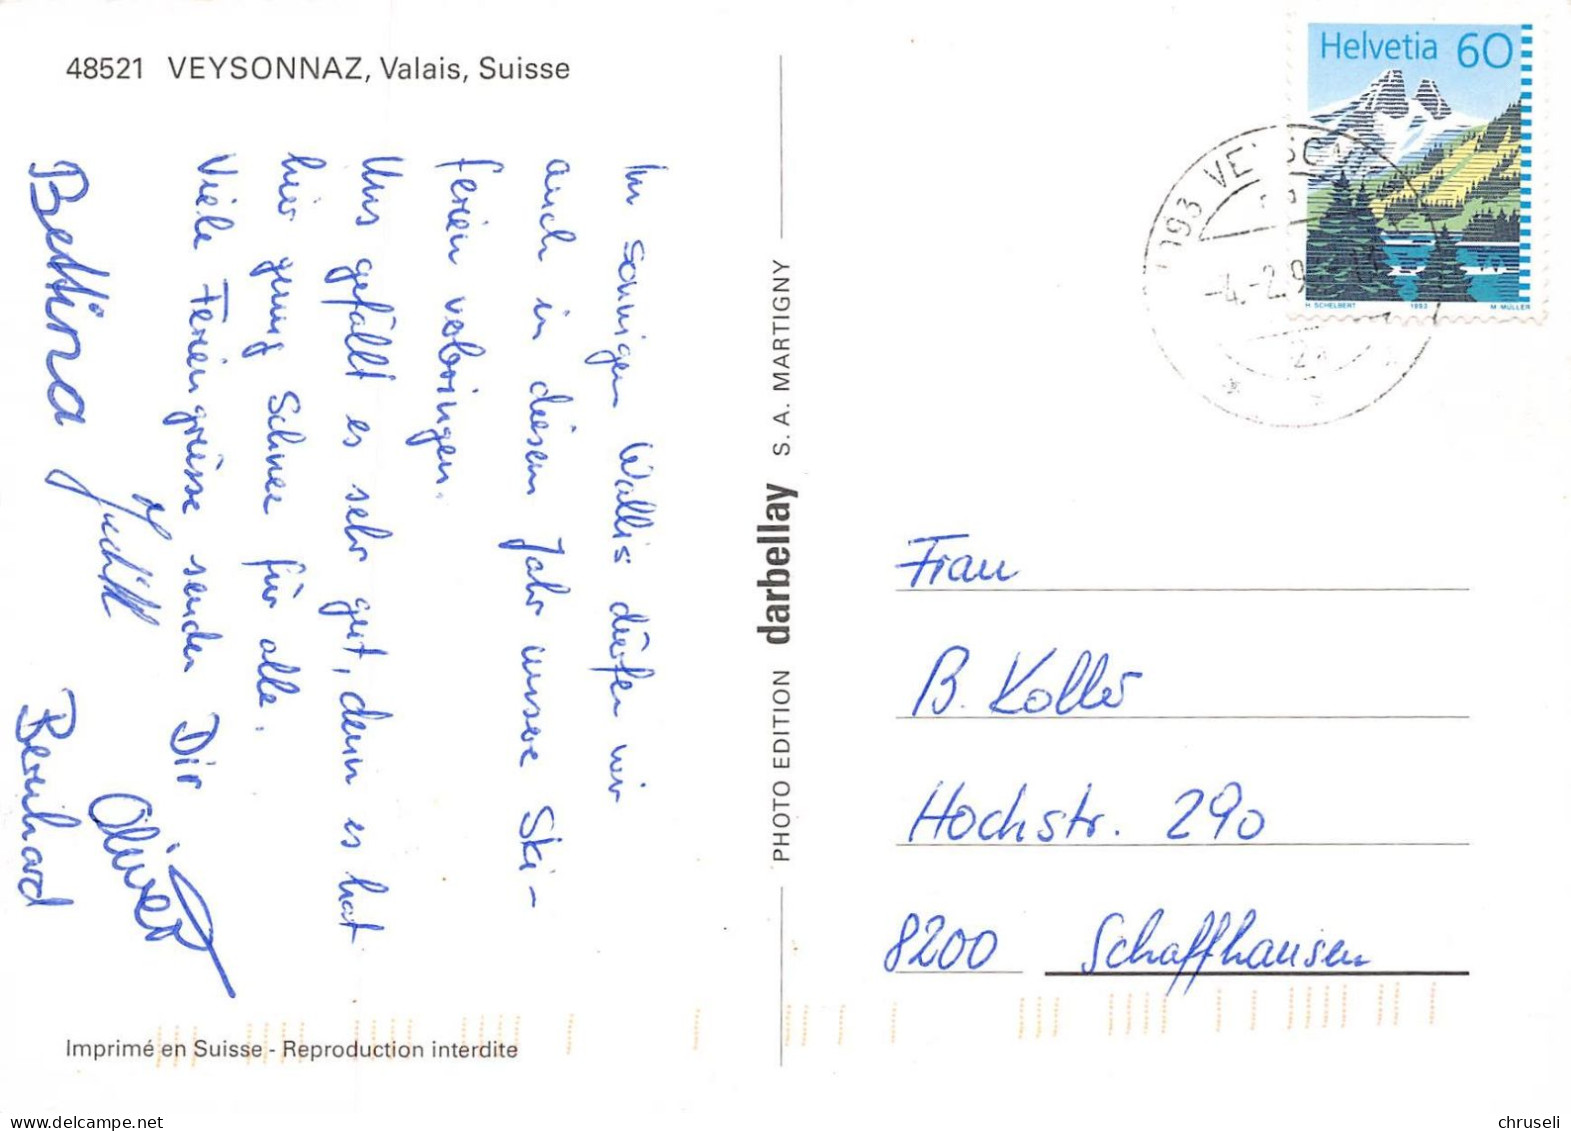 48521 VEYSONNAZ, Valais, Suisse
Im sonnigen Wallis dürfen wir
auch in diesem Jahr unsere Ski-
ferien verbringen.
Uns gefällt es sehr gut, denn es hat
hier genug Schnee für alle.
Viele Feriengrüsse senden Dir
Bettina Judith Oliver
Bernhard
Imprimé en Suisse - Reproduction interdite
PHOTO EDITION darbellay S. A. MARTIGNY
Helvetia 60
H. SCHELBERT 1993 M. MÜLLER
-4.-2.9
Frau
B. Koller
Hochstr. 290
8200 Schaffhausen
chruseli